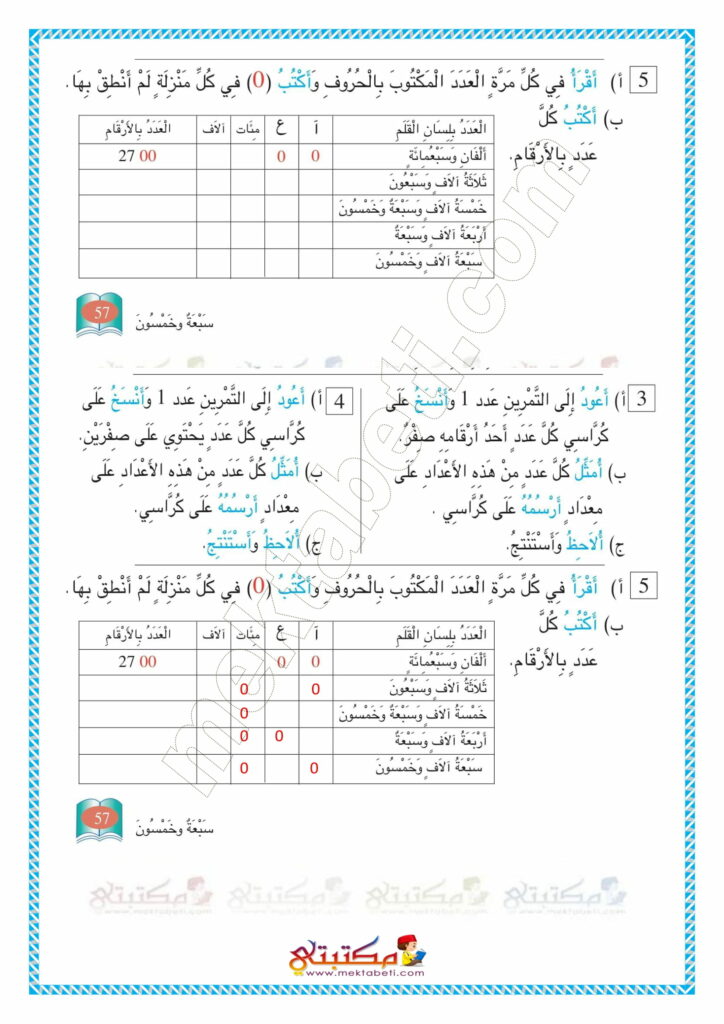 5 أ) أَقْرَأُ فِي كُلِّ مَرَّةٍ الْعَدَدَ الْمَكْتُوبَ بِالْحُرُوفِ وَأَكْتُبُ (0) فِي كُلِّ مَنْزِلَةٍ لَمْ أَنْطِقْ بِهَا.
ب) أَكْتُبُ كُلَّ
عَدَدٍ بِالأَرْقَامِ.
الْعَدَدُ بِلِسَانِ الْقَلَمِ آ ع مِئَات آلاَف الْعَدَدُ بِالأَرْقَامِ
أَلْفَانِ وَسَبْعُمِائَةٍ 0 0 27 00
ثَلاَثَةُ آلاَفٍ وَسَبْعُونَ
خَمْسَةُ آلاَفٍ وَسَبْعَةٌ وَخَمْسُونَ
أَرْبَعَةُ آلاَفٍ وَسَبْعَةٌ
سَبْعَةُ آلاَفٍ وَخَمْسُونَ
سَبْعَةٌ وخَمْسُونَ 57
3 أ) أَعُودُ إِلَى التَّمْرِينِ عَدد 1 وَأَنْسَخُ عَلَى
كُرَّاسِي كُلَّ عَدَدٍ أَحَدُ أَرْقَامِهِ صفِْرٌ.
ب) أُمَثِّلُ كُلَّ عَدَدٍ مِنْ هَذِهِ الأَعْدَادِ عَلَى
مِعْدَادٍ أَرْسُمُهُ عَلَى كُرَّاسِي .
ج) أُلاَحِظُ وَأَسْتَنْتِجُ.
4 أ) أَعُودُ إِلَى التَّمْرِينِ عَدد 1 وَأَنْسَخُ عَلَى
كُرَّاسِي كُلَّ عَدَدٍ يَحْتَوِي عَلَى صِفْرَيْنِ.
ب) أُمَثِّلُ كُلَّ عَدَدٍ مِنْ هَذِهِ الأَعْدَادِ عَلَى
مِعْدَادٍ أَرْسُمُهُ عَلَى كُرَّاسِي.
ج) أُلاَحِظُ وَأَسْتَنْتِجُ.
5 أ) أَقْرَأُ فِي كُلِّ مَرَّةٍ الْعَدَدَ الْمَكْتُوبَ بِالْحُرُوفِ وَأَكْتُبُ (0) فِي كُلِّ مَنْزِلَةٍ لَمْ أَنْطِقْ بِهَا.
ب) أَكْتُبُ كُلَّ
عَدَدٍ بِالأَرْقَامِ.
الْعَدَدُ بِلِسَانِ الْقَلَمِ آ ع مِئَات آلاَف الْعَدَدُ بِالأَرْقَامِ
أَلْفَانِ وَسَبْعُمِائَةٍ 0 0 27 00
ثَلاَثَةُ آلاَفٍ وَسَبْعُونَ 0 0
خَمْسَةُ آلاَفٍ وَسَبْعَةٌ وَخَمْسُونَ 0
أَرْبَعَةُ آلاَفٍ وَسَبْعَةٌ 0 0
سَبْعَةُ آلاَفٍ وَخَمْسُونَ 0 0
سَبْعَةٌ وخَمْسُونَ 57
mektabeti.com
مكتبتي مكتبتي مكتبتي مكتبتي
www.mektabeti.com www.mektabeti.com www.mektabeti.com www.mektabeti.com
مكتبتي
www.mektabeti.com